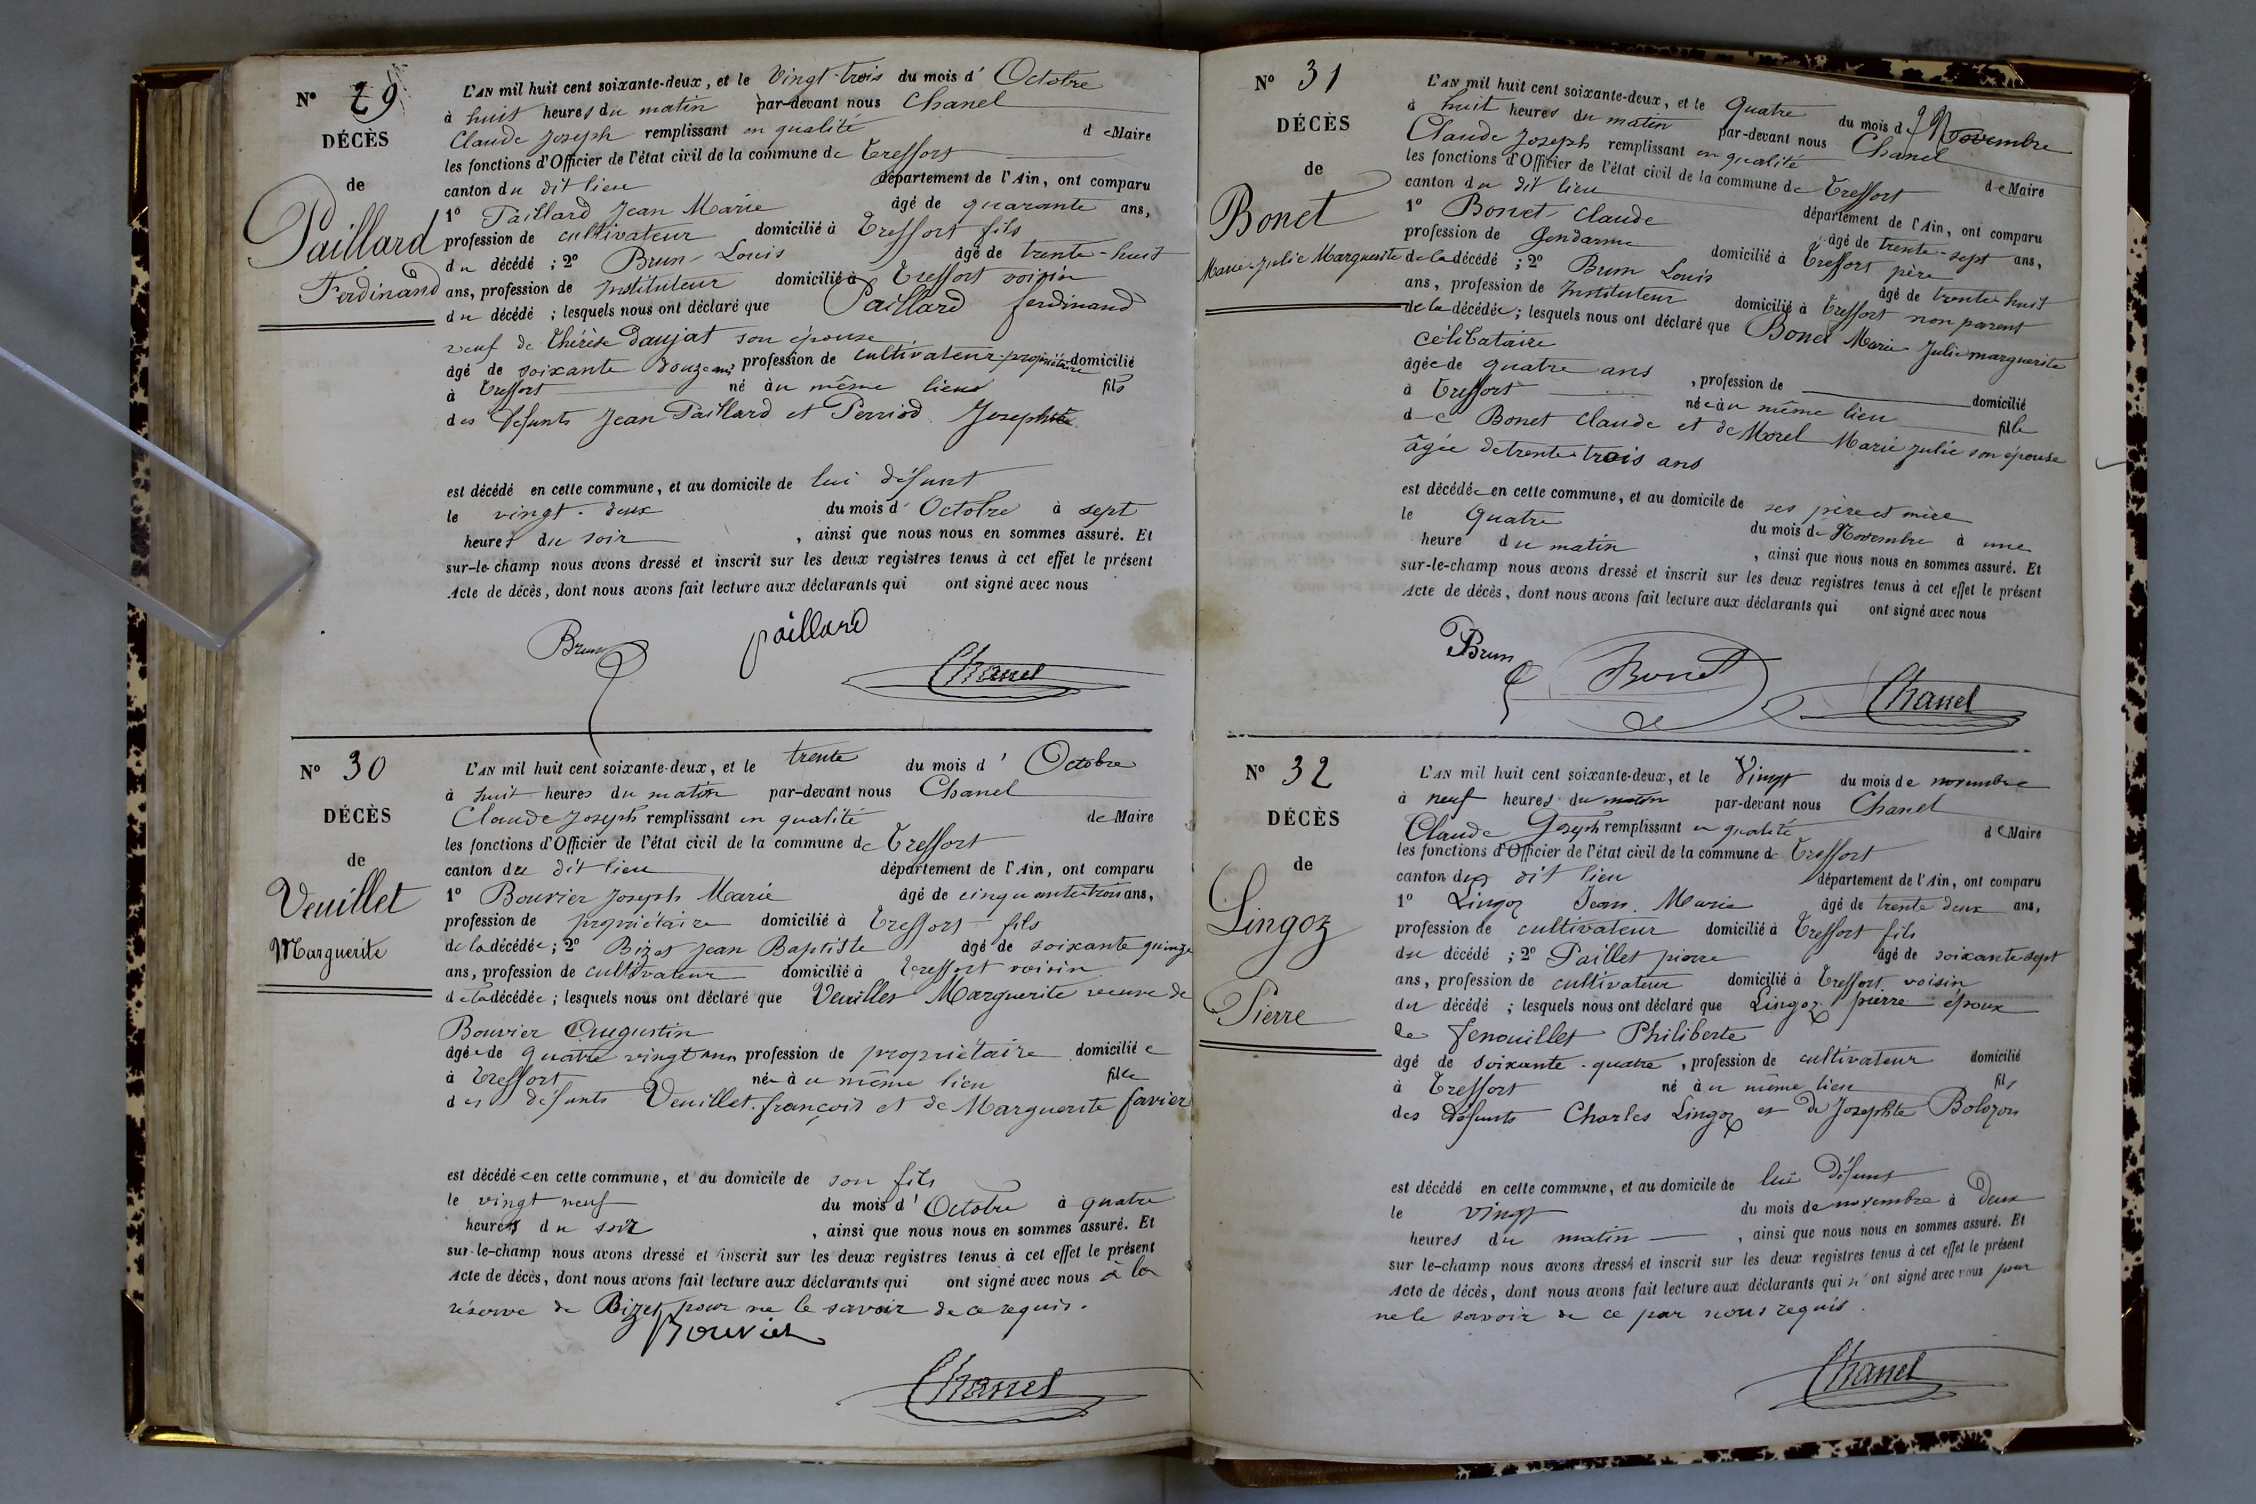 N° 29
DÉCÈS
de
Paillard
Ferdinand
L'AN mil huit cent soixante-deux, et le Vingt-trois du mois d' Octobre
à huit heures du matin par-devant nous Chanel
Claude Joseph remplissant en qualité de Maire
les fonctions d'Officier de l'état civil de la commune de Treffort
canton du dit lieu département de l'Ain, ont comparu
1° Paillard Jean Marie âgé de quarante ans,
profession de cultivateur domicilié à Treffort fils
du décédé ; 2° Brun Louis âgé de trente-huit
ans, profession de Instituteur domicilié à Treffort voisin
du décédé ; lesquels nous ont déclaré que Paillard ferdinand
veuf de Thérèse Daujat son épouse
âgé de soixante douze ans profession de cultivateur-propriétaire domicilié
à Treffort né au même lieu fils
des défunts Jean Paillard et Perriod Josephte
est décédé en cette commune, et au domicile de lui défunt
le vingt-deux du mois d' Octobre à sept
heures du soir , ainsi que nous nous en sommes assuré. Et
sur-le-champ nous avons dressé et inscrit sur les deux registres tenus à cet effet le présent
Acte de décès, dont nous avons fait lecture aux déclarants qui ont signé avec nous
Brun paillard
Chanel
N° 30
DÉCÈS
de
Veuillet
Marguerite
L'AN mil huit cent soixante-deux, et le trente du mois d' Octobre
à huit heures du matin par-devant nous Chanel
Claude Joseph remplissant en qualité de Maire
les fonctions d'Officier de l'état civil de la commune de Treffort
canton du dit lieu département de l'Ain, ont comparu
1° Bouvier Joseph Marie âgé de cinquante trois ans,
profession de propriétaire domicilié à Treffort fils
de la décédée ; 2° Bizet Jean Baptiste âgé de soixante quinze
ans, profession de cultivateur domicilié à Treffort voisin
de la décédée ; lesquels nous ont déclaré que Veuillet Marguerite veuve de
Bouvier Augustin
âgée de quatre vingt ans profession de propriétaire domiciliée
à Treffort née au même lieu fille
des défunts Veuillet françois et de Marguerite favier
est décédée en cette commune, et au domicile de son fils
le vingt neuf du mois d' Octobre à quatre
heures du soir , ainsi que nous nous en sommes assuré. Et
sur-le-champ nous avons dressé et inscrit sur les deux registres tenus à cet effet le présent
Acte de décès, dont nous avons fait lecture aux déclarants qui ont signé avec nous à la
réserve de Bizet pour ne le savoir de ce requis.
Bouvier
Chanel
N° 31
DÉCÈS
de
Bonet
Marie-Julie Marguerite
L'AN mil huit cent soixante-deux, et le Quatre du mois de Novembre
à huit heures du matin par-devant nous Chanel
Claude Joseph remplissant en qualité de Maire
les fonctions d'Officier de l'état civil de la commune de Treffort
canton du dit lieu département de l'Ain, ont comparu
1° Bonet Claude âgé de trente-sept ans,
profession de Gendarme domicilié à Treffort père
de la décédé ; 2° Brun Louis âgé de trente-huit
ans, profession de Instituteur domicilié à Treffort non parent
de la décédée ; lesquels nous ont déclaré que Bonet Marie Julie marguerite
célibataire
âgée de quatre ans , profession de domicilié
à Treffort née au même lieu fille
de Bonet Claude et de Morel Marie Julie son épouse
âgée de trente trois ans
est décédée en cette commune, et au domicile de ses père et mère
le Quatre du mois de Novembre à une
heure du matin , ainsi que nous nous en sommes assuré. Et
sur-le-champ nous avons dressé et inscrit sur les deux registres tenus à cet effet le présent
Acte de décès, dont nous avons fait lecture aux déclarants qui ont signé avec nous
Brun Bonet Chanel
N° 32
DÉCÈS
de
Lingoz
Pierre
L'AN mil huit cent soixante-deux, et le Vingt du mois de novembre
à neuf heures du matin par-devant nous Chanel
Claude Joseph remplissant en qualité de Maire
les fonctions d'Officier de l'état civil de la commune de Treffort
canton du dit lieu département de l'Ain, ont comparu
1° Lingoz Jean Marie âgé de trente deux ans,
profession de cultivateur domicilié à Treffort fils
du décédé ; 2° Paillet pierre âgé de soixante sept
ans, profession de cultivateur domicilié à Treffort voisin
du décédé ; lesquels nous ont déclaré que Lingoz pierre époux
de fenouillet Philiberte
âgé de soixante-quatre , profession de cultivateur domicilié
à Treffort né au même lieu fils
des défunts Charles Lingoz et de Josephte Bolozon
est décédé en cette commune, et au domicile de lui défunt
le vingt du mois de novembre à deux
heures du matin , ainsi que nous nous en sommes assuré. Et
sur le-champ nous avons dressé et inscrit sur les deux registres tenus à cet effet le présent
Acte de décès, dont nous avons fait lecture aux déclarants qui n'ont signé avec nous pour
ne le savoir de ce par nous requis.
Chanel